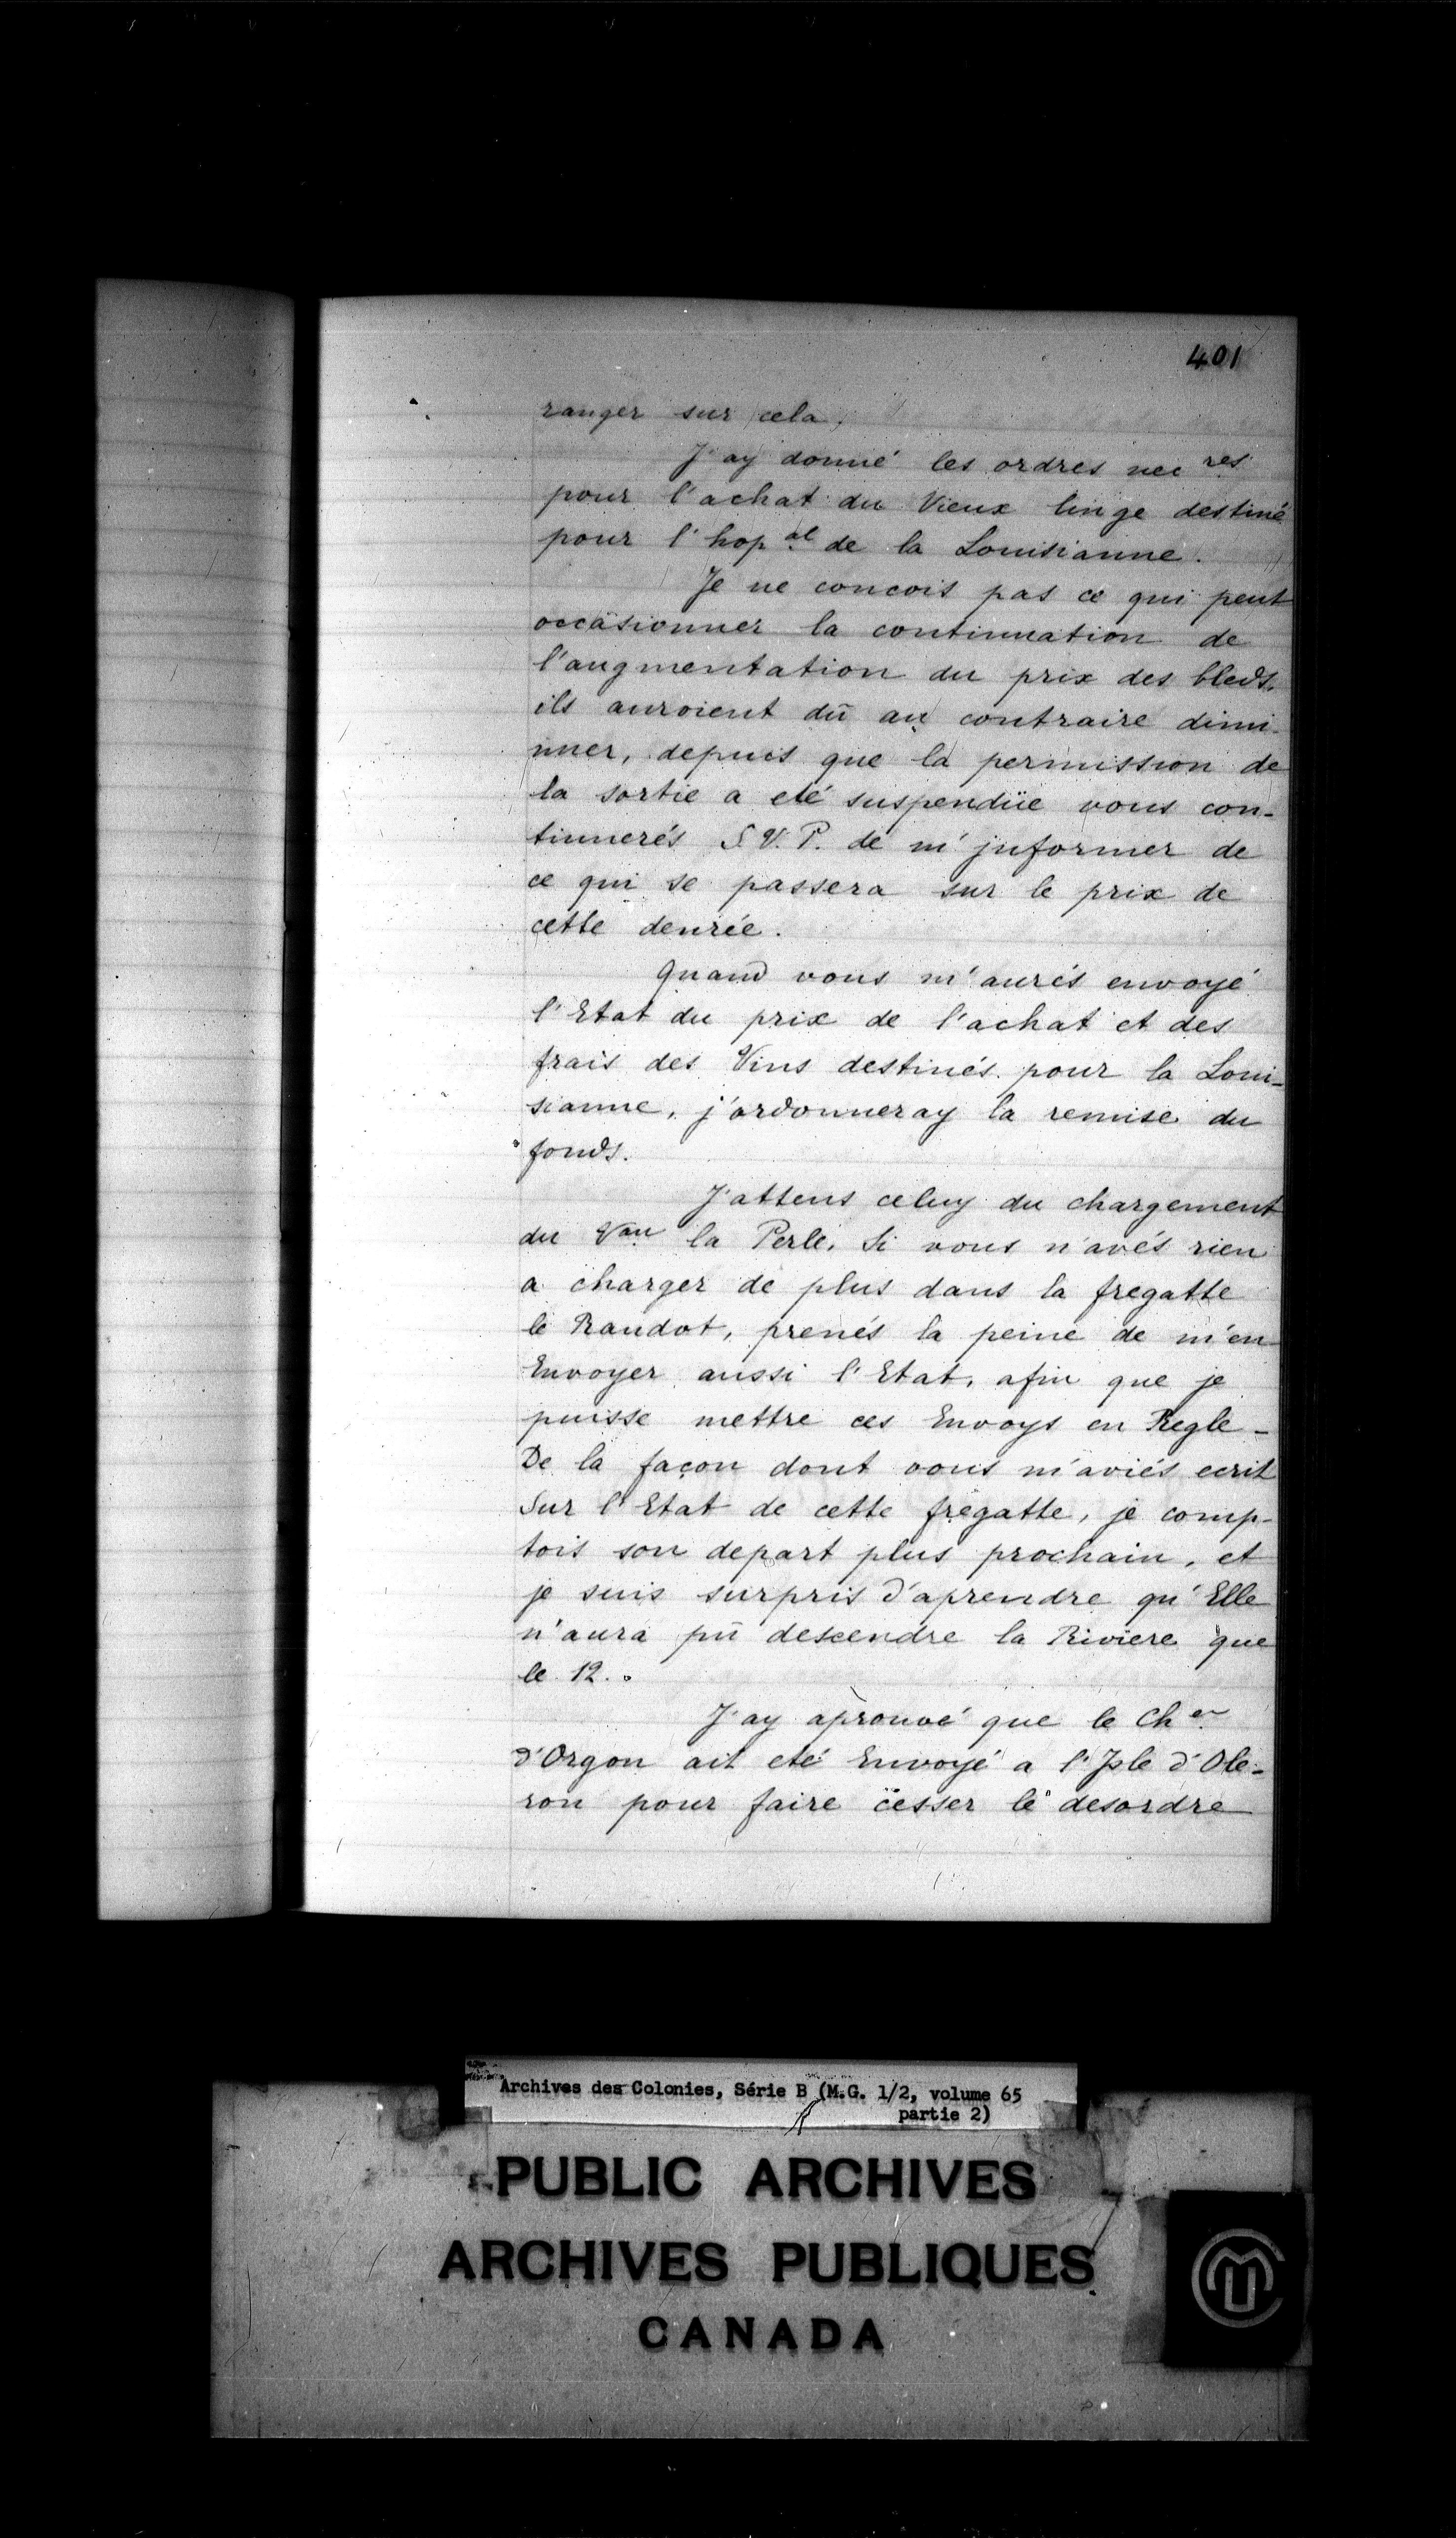 401
ranger sur cela,
J'ay donné les ordres necres
pour l'achat du Vieux linge destiné
pour l'hopal de la Louisianne.
Je ne concois pas ce qui peut
occasionner la continuation de
l'augmentation du prix des bleds,
ils auroient dû au contraire dimi-
nuer, depuis que la permission de
la sortie a eté suspendüe vous con-
tinuerés S. V. P. de m'jnformer de
ce qui se passera sur le prix de
cette denrée.
Quand vous m'aurés envoyé
l'Etat du prix de l'achat et des
frais des Vins destinés pour la Loui-
sianne, j'ordonneray la remise du
fonds.
J'attens celuy du chargement
du Vau la Perle. Si vous n'avés rien
a charger de plus dans la fregatte
le Raudot, prenés la peine de m'en
Envoyer aussi l'Etat, afin que je
puisse mettre ces Envoys en Regle -
De la façon dont vous m'aviés ecrit
Sur l'Etat de cette fregatte, je comp-
tois son depart plus prochain, et
je suis surpris d'aprendre qu'Elle
n'aura pû descendre la Riviere que
le 12.
J'ay aprouvé que le Cher
d'Orgon ait eté Envoyé a l'Isle d'Ole-
ron pour faire cesser le desordre
Archives des Colonies, Série B (M.G. 1/2, volume 65
partie 2)
PUBLIC ARCHIVES
ARCHIVES PUBLIQUES
CANADA